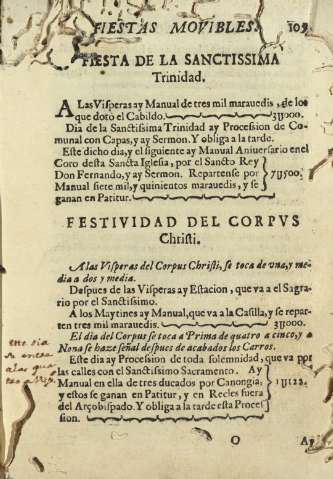 FIESTAS MOVIBLES. 109
FIESTA DE LA SANCTISSIMA
Trinidad.
A Las Visperas ay Manual de tres mil marauedis, de los
que dotò el Cabildo. 3U000.
Dia de la Sanctissima Trinidad ay Procession de Co-
munal con Capas, y ay Sermon. Y obliga a la tarde.
Este dicho dia, y el siguiente ay Manual Aniversario en el
Coro desta Sancta Iglesia, por el Sancto Rey
Don Fernando, y ay Sermon. Repartense por 7U500.
Manual siete mil, y quinientos marauedis, y se
ganan en Patitur.
FESTIVIDAD DEL CORPVS
Christi.
A las Visperas del Corpus Christi, se toca de vna, y me-
dia a dos y media.
Despues de las Visperas ay Estacion, que va a el Sagra-
rio por el Sanctissimo.
A los Maytines ay Manual, que va a la Casilla, y se repar-
ten tres mil marauedis. 3U000.
El dia del Corpus se toca a Prima de quatro a cinco, y a
Nona se haze señal despues de acabados los Carros.
este dia
se entra
a las qua
Este dia ay Procession de toda solemnidad, que va por
las calles con el Sanctissimo Sacramento. Ay
Manual en ella de tres ducados por Canongia, 1U122.
y estos se ganan en Patitur, y en Recles fuera
del Arçobispado. Y obliga a la tarde esta Proces-
sion.
O Ay